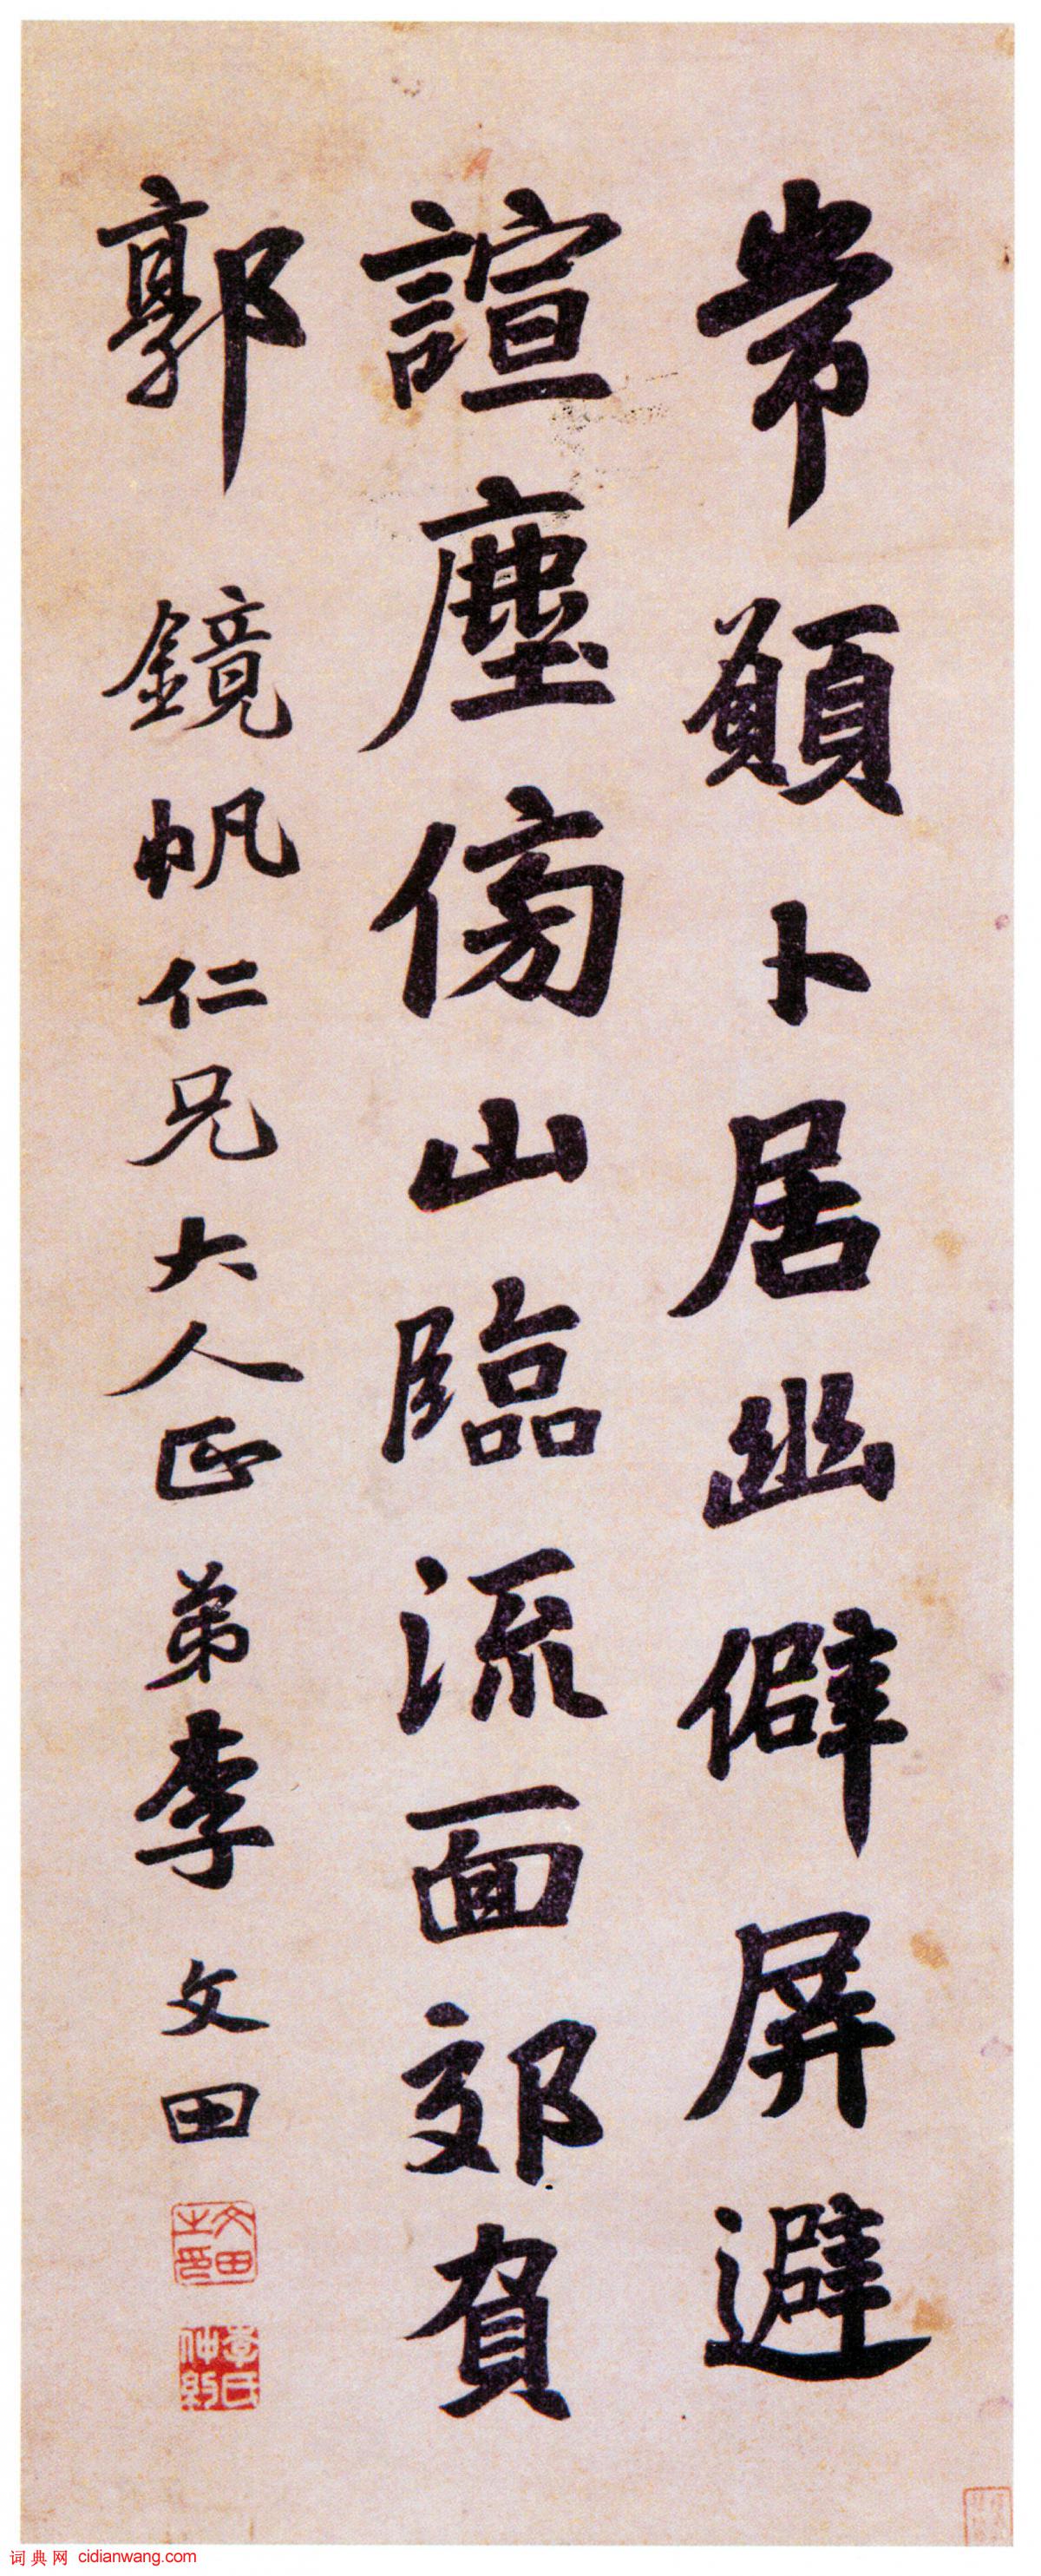 常願卜居幽僻屏避
諠塵傍山臨流面郊負
郭 鏡帆仁兄大人正 弟李文田
文田之印
李氏仲約
词典网 cidianwang.com